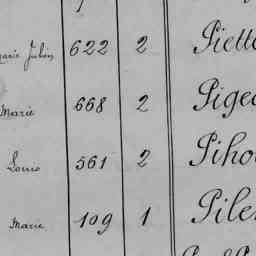 Marie Julien 622 2 Piett
Marie 668 2 Pige
Louis 561 2 Piho
Marie 109 1 Pile